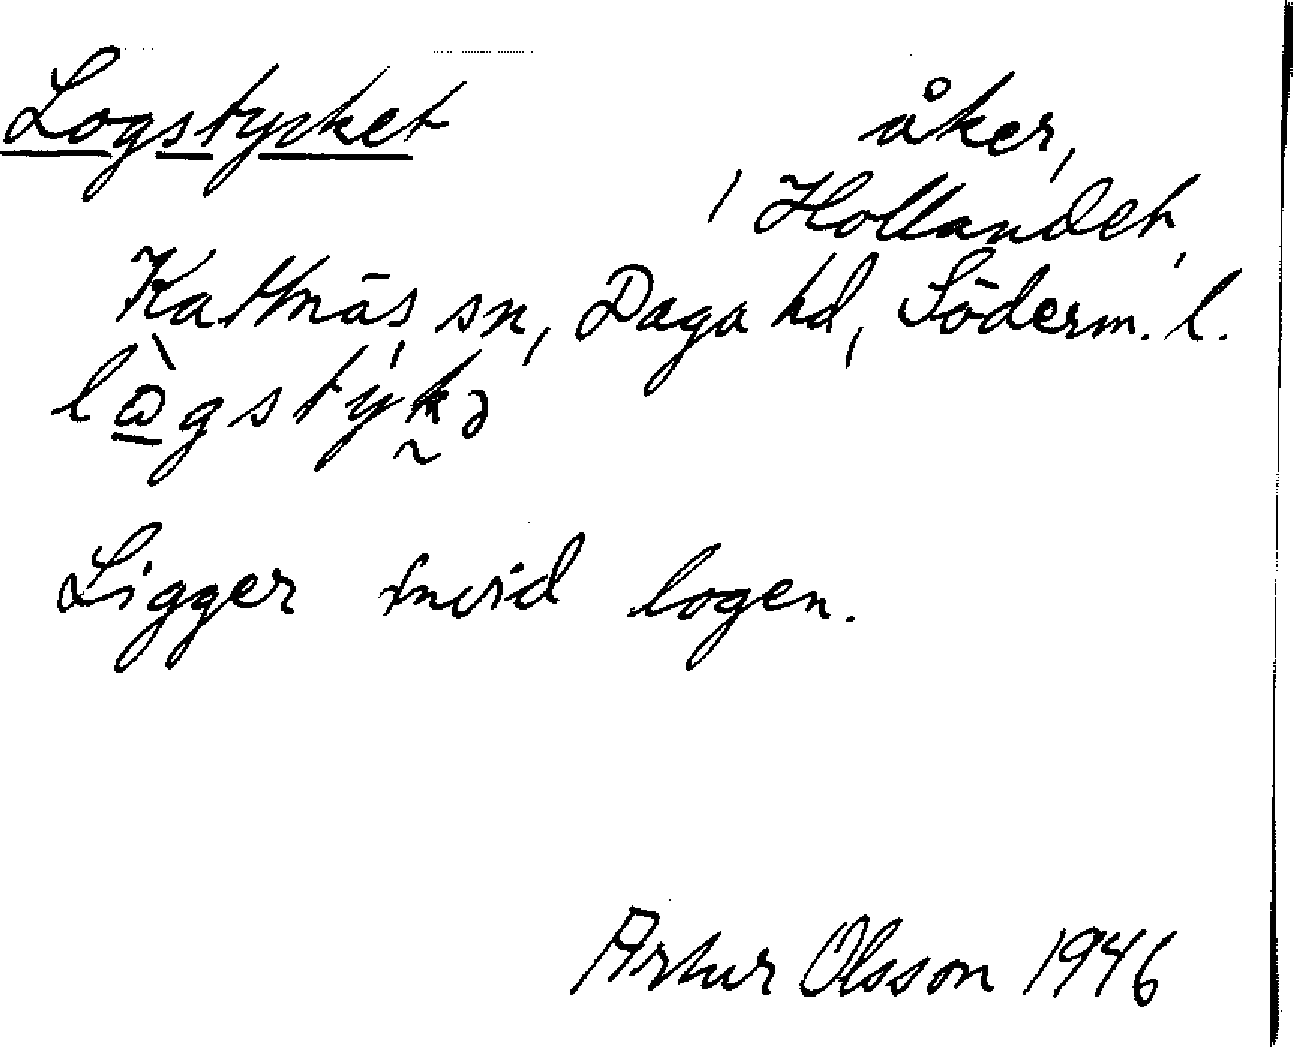 Logstycket åker,
i Hollandet,
Kattnäs, sn, Daga hd, Söderm. l.
Ligger invid logen.
Artur Olsson 1946